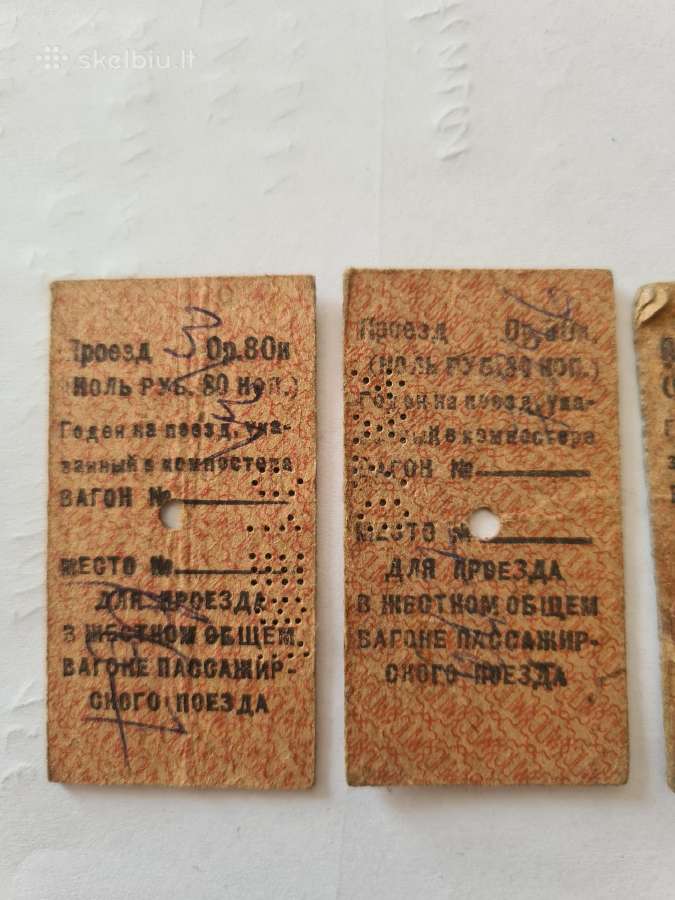 skelbiu.lt
Проезд 0р.80к
(НОЛЬ РУБ. 80 КОП.)
Годен на поезд, ука-
занный в компостере
ВАГОН №
МЕСТО №
ДЛЯ ПРОЕЗДА
В ЖЕСТКОМ ОБЩЕМ
ВАГОНЕ ПАССАЖИР-
СКОГО ПОЕЗДА
Проезд 0р.80к.
(НОЛЬ РУБ. 80 КОП.)
Годен на поезд, ука-
занный в компостере
ВАГОН №
МЕСТО №
ДЛЯ ПРОЕЗДА
В ЖЕСТКОМ ОБЩЕМ
ВАГОНЕ ПАССАЖИР-
СКОГО ПОЕЗДА